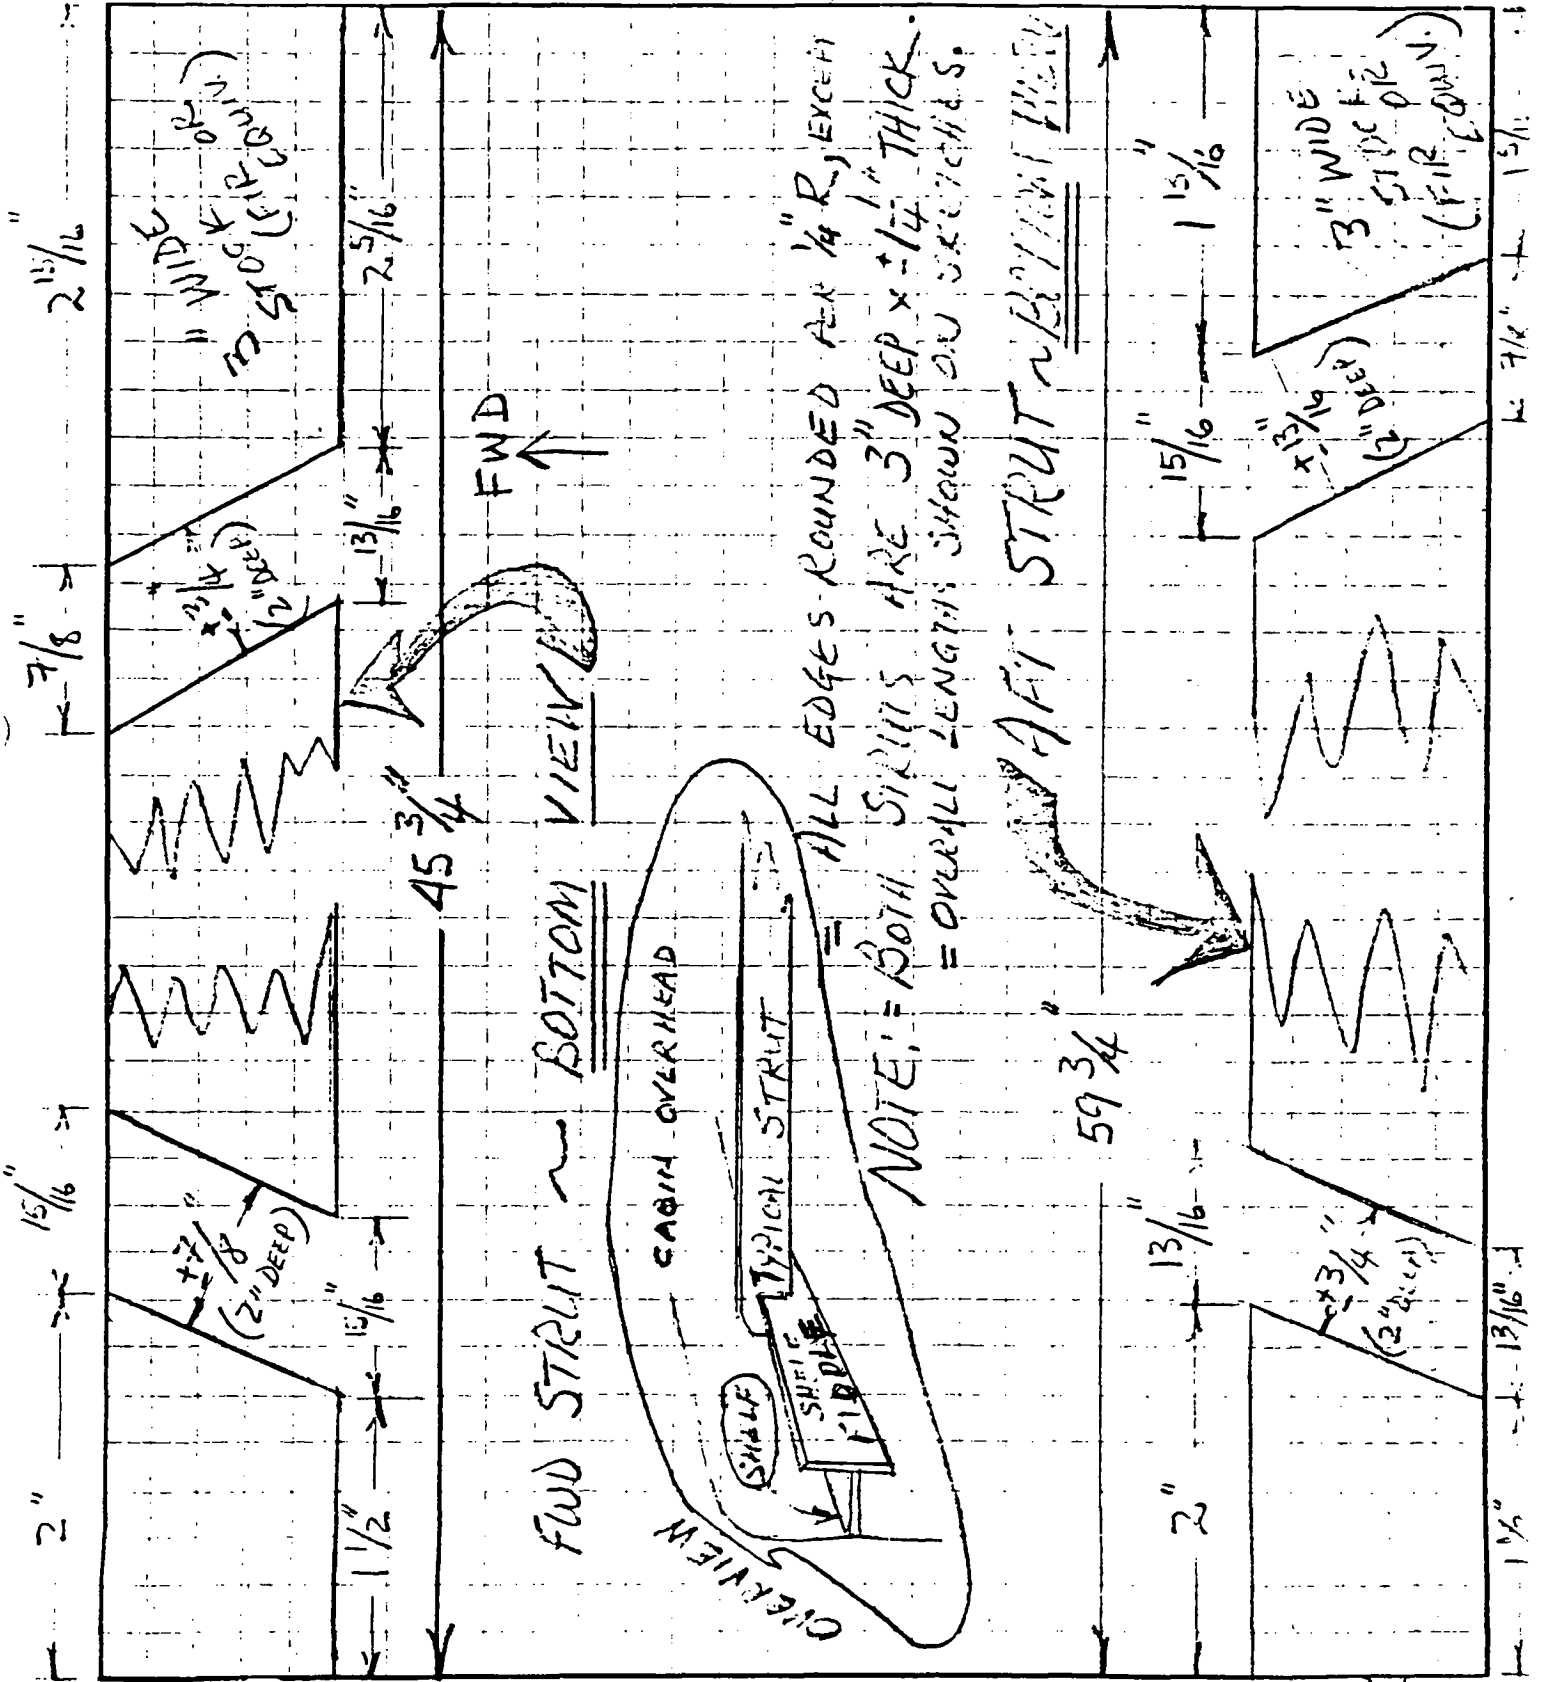 2"
15/16"
7/8"
2 15/16"
+-7/8"
(2" DEEP)
+-3/4"
(2" DEEP)
3" WIDE
STOCK OR
(FIR EQUIV.)
1 1/2"
15/16"
13/16"
2 5/16"
45 3/4"
FWD
FWD STRUT ~ BOTTOM VIEW
OVERVIEW
CABIN OVERHEAD
SHELF
TYPICAL STRUT
SHELF
FIDDLE
= ALL EDGES ROUNDED 1/4" R., EXCEPT
NOTE: = BOTH STRUTS ARE 3" DEEP x +-1 1/4" THICK.
= OVERALL LENGTHS SHOWN ON SKETCHES.
AFT STRUT ~ BOTTOM VIEW
59 3/4"
2"
13/16"
15/16"
1 15/16"
+-3/4"
(2" DEEP)
+-13/16"
(2" DEEP)
3" WIDE
STOCK
OR
(FIR EQUIV.)
13/16"
7/8"